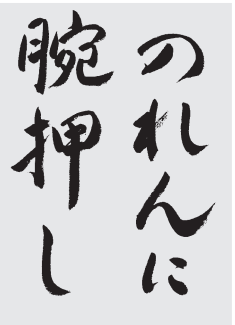 のれんに
腕押し